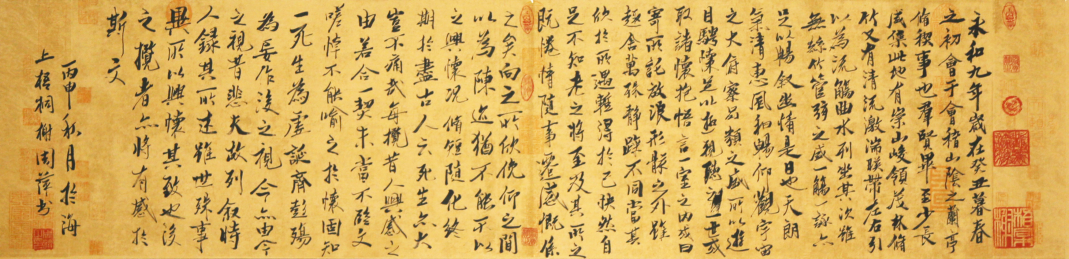 永和九年歲在癸丑暮春
之初會于會稽山陰之蘭亭
脩稧事也群賢畢至少長
咸集此地有崇山峻領茂林脩
竹又有清流激湍暎帶左右引
以為流觴曲水列坐其次雖
無絲竹管弦之盛一觴一詠亦
足以暢敘幽情是日也天朗
氣清惠風和暢仰觀宇宙
之大俯察品類之盛所以遊
目騁懷足以極視聽 或
取諸懷抱悟言一室之内或因
寄所託放浪形骸之外雖
趣舍萬殊靜躁不同當其
欣於所遇暫得於己快然自
足不知老之將至及其所之
既惓情隨事遷感慨係
之矣向之所欣俛仰之間
以為陳迹猶不能不以
之興懷況脩短隨化終
期於盡古人云死生亦大
豈不痛哉每攬昔人興感之
由若合一契未嘗不臨文
嗟悼不能喻之於懷固知
一死生為虛誕齊彭殤
為妄作後之視今亦由今
之視昔悲夫故列敘時
人錄其所述雖世殊事
異所以興懷其致也後
之攬者亦將有感於
斯文
丙申秋月於海
上梧桐樹周萍書